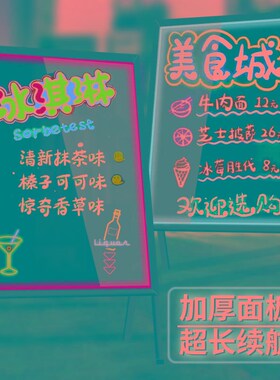 冰淇淋
Sorbetest
清新抹茶味
榛子可可味
惊奇香草味
Liquor
美食城
牛肉面 12
芝士披萨 26
冰莓胜代 8元
欢迎选购
加厚面板
超长续航